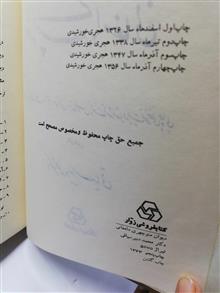 چاپ اول اسفندماه سال ۱۳۲۶ هجری خورشیدی
چاپ دوم تیرماه سال ۱۳۳۸ هجری خورشیدی
چاپ سوم آذرماه سال ۱۳۴۷ هجری خورشیدی
چاپ چهارم آذرماه سال ۱۳۵۶ هجری خورشیدی
جمیع حق چاپ محفوظ و مخصوص مصحح است
کتابفروشی زوار
دیوان منوچهری دامغانی
دکتر محمد دبیرسیاقی